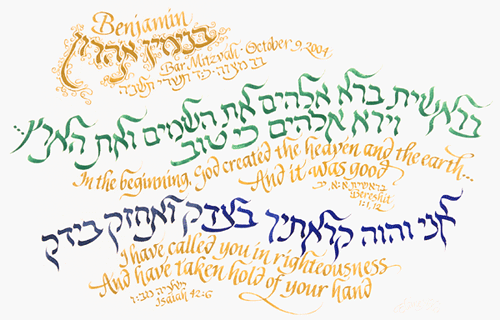 Benjamin
בנימין אהרון
Bar Mitzvah · October 9, 2004
בר מצוה · כד תשרי תשס״ה
בראשית ברא אלהים את השמים ואת הארץ...
וירא אלהים כי טוב
In the beginning, God created the heaven and the earth...
And it was good
בראשית א:א, יב
Bereshit
1:1, 12
אני יהוה קראתיך בצדק ואחזק בידך
I have called you in righteousness
And have taken hold of your hand
ישעיה מב:ו
Isaiah 42:6